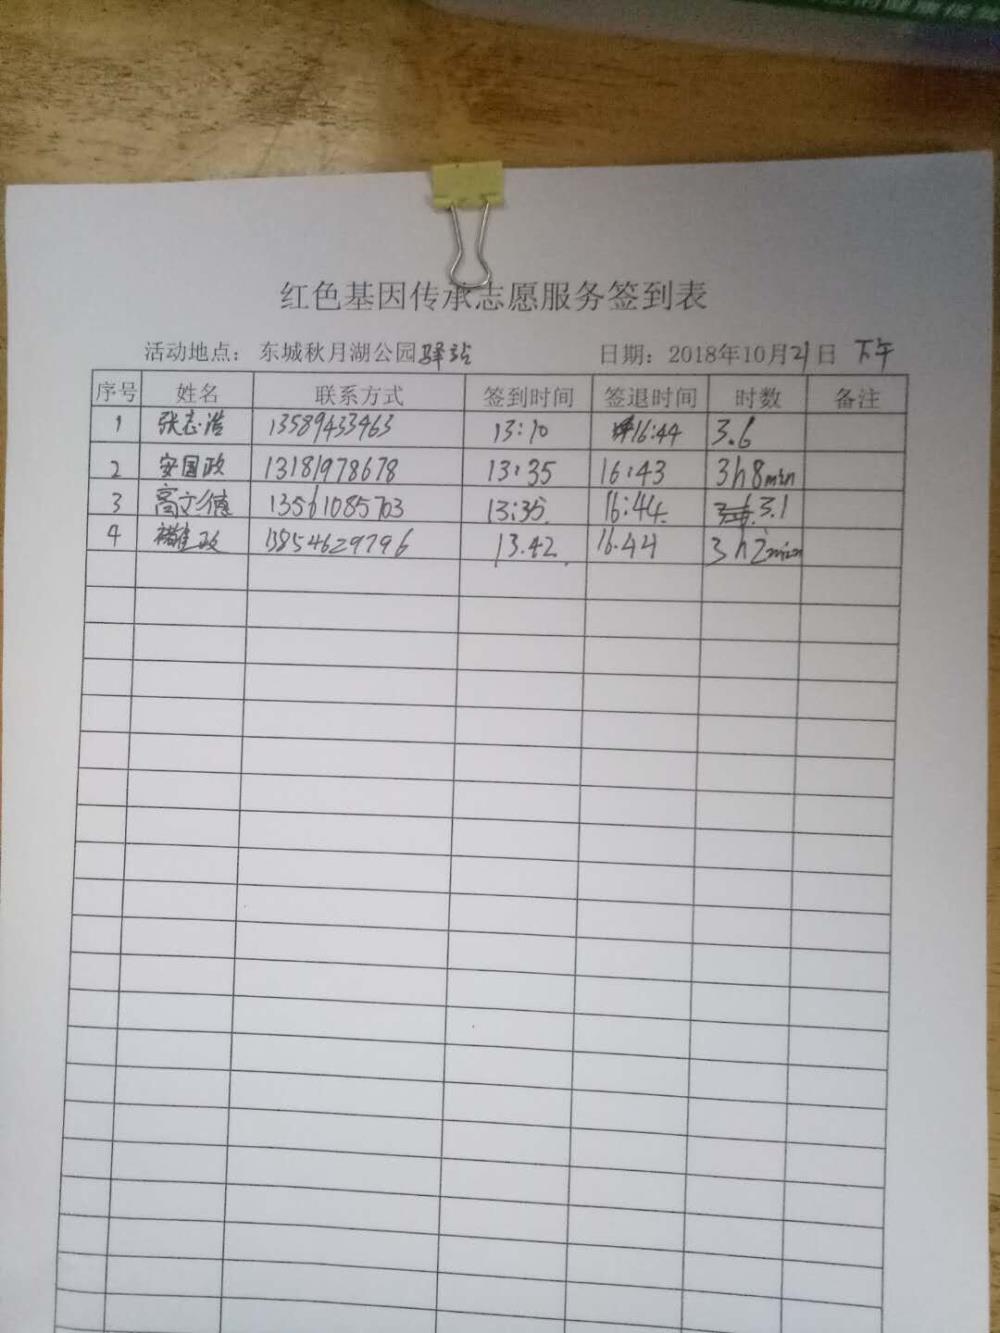 红色基因传承志愿服务签到表
活动地点：东城秋月湖公园驿站 日期：2018年10月21日 下午
序号 姓名 联系方式 签到时间 签退时间 时数 备注
1 张志浩 13589433463 13:10 16:44 3.6
2 安国政 13181978678 13:35 16:43 3h8min
3 高文德 13561085703 13:35 16:44 3.1
4 政 13854629796 13.42 16.44 3h2min